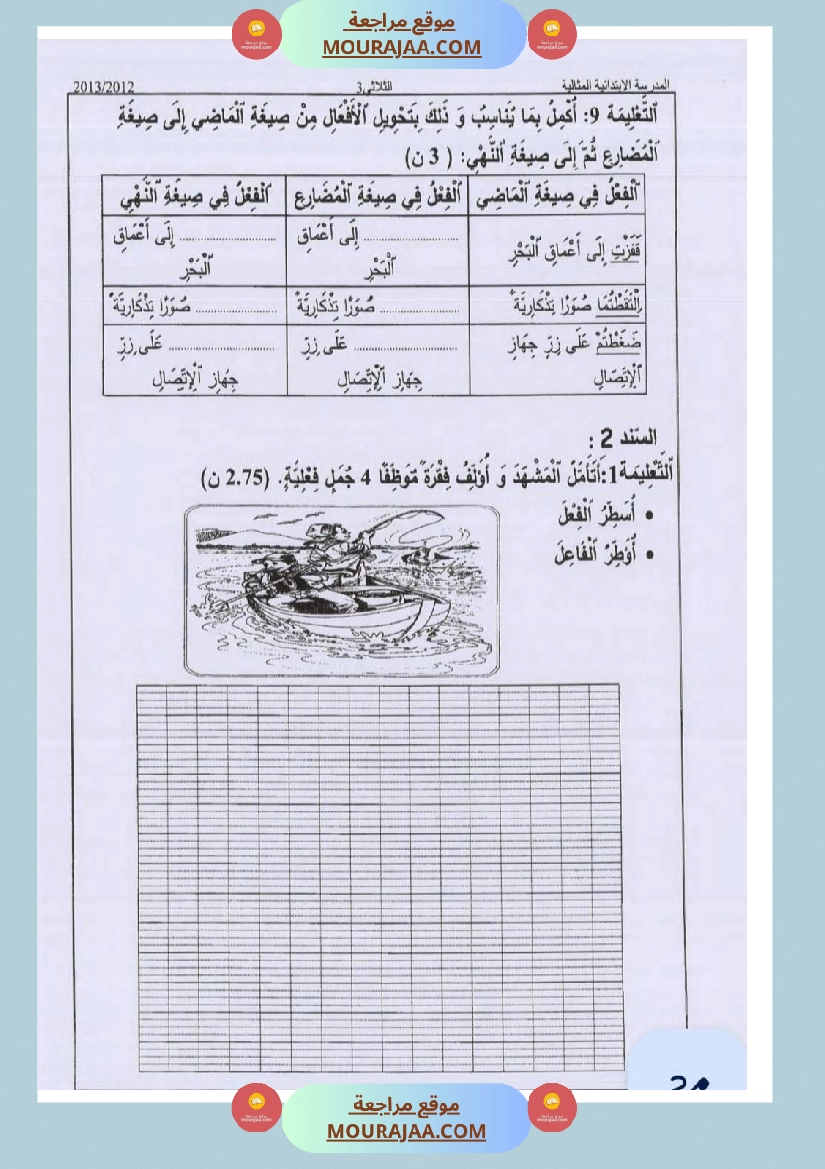 موقع مراجعة
MOURAJAA.COM
المدرسة الابتدائية المثالية الثلاثي3 2013/2012
اَلتَّعْلِيمَة 9: أُكْمِلُ بِمَا يُنَاسِبُ وَ ذَلِكَ بِتَحْوِيلِ اَلْأَفْعَالِ مِنْ صِيغَةِ اَلْمَاضِي إِلَى صِيغَةِ
اَلْمُضَارِعِ ثُمَّ إِلَى صِيغَةِ اَلنَّهْيِ: ( 3 ن)
اَلْفِعْلُ فِي صِيغَةِ اَلْمَاضِي اَلْفِعْلُ فِي صِيغَةِ اَلْمُضَارِعِ اَلْفِعْلُ فِي صِيغَةِ اَلنَّهْيِ
قَفَزْتِ إِلَى أَعْمَاقِ اَلْبَحْرِ ............ إِلَى أَعْمَاقِ اَلْبَحْرِ ............ إِلَى أَعْمَاقِ اَلْبَحْرِ
اِلْتَقَطْتُمَا صُوَرًا تِذْكَارِيَّةً ............ صُوَرًا تِذْكَارِيَّةً ............ صُوَرًا تِذْكَارِيَّةً
ضَغَطْتُمْ عَلَى زِرِّ جِهَازِ اَلْاِتِّصَالِ ............ عَلَى زِرِّ جِهَازِ اَلْاِتِّصَالِ ............ عَلَى زِرِّ جِهَازِ اَلْاِتِّصَالِ
السّند 2 :
اَلتَّعْلِيمَة1:أَتَأَمَّلُ اَلْمَشْهَدَ وَ أُؤَلِّفُ فِقْرَةً مُوَظِّفًا 4 جُمَلٍ فِعْلِيَّةٍ. (2.75 ن)
• أُسَطِّرُ اَلْفِعْلَ
• أُؤَطِّرُ اَلْفَاعِلَ
موقع مراجعة
MOURAJAA.COM